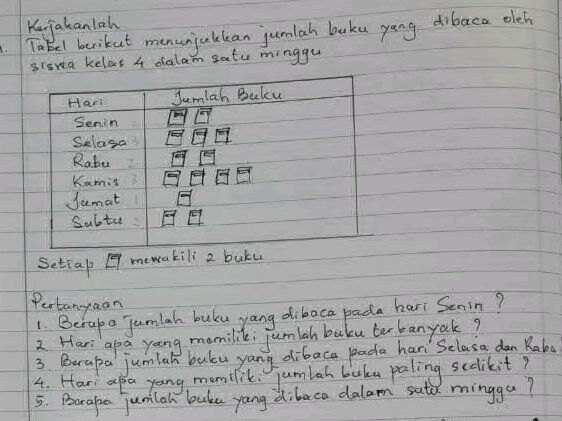 Kerjakanlah
1. Tabel berikut menunjukkan jumlah buku yang dibaca oleh
siswa kelas 4 dalam satu minggu
Hari Jumlah Buku
Senin 2
Selasa 3
Rabu 2
Kamis 3
Jumat 1
Sabtu 2
Setiap mewakili 2 buku
Pertanyaan
1. Berapa jumlah buku yang dibaca pada hari Senin ?
2. Hari apa yang memiliki jumlah buku terbanyak ?
3. Berapa jumlah buku yang dibaca pada hari Selasa dan Rabu
4. Hari apa yang memiliki jumlah buku paling sedikit ?
5. Barapa jumlah buku yang dibaca dalam satu minggu ?